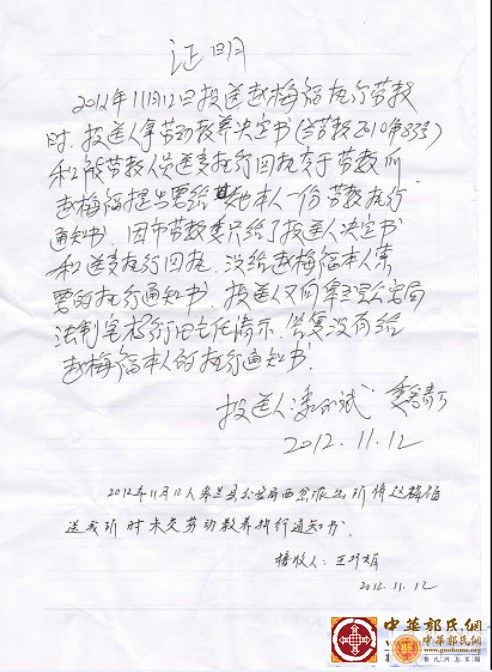 证明
2012年11月12日投送赵梅福执行劳教
时，投送人拿劳动教养决定书（兰劳教2010第33号）
和被劳教人员送交执行回执交于劳教所
赵梅福提出要给她本人一份劳教执行
通知书，因市劳教委只给了投送人决定书
和送交执行回执，没给赵梅福本人索
要的执行通知书，投送人又向皋兰县公安局
法制室杨行田主任请示，答复没有给
赵梅福本人的执行通知书.
投送人：
2012.11.12
2012年11月12日皋兰县公安局西岔派出所将赵梅福
送我所时未交劳动教养执行通知书.
接收人：王
2012.11.12
中華郭氏網
www.guoshome.org